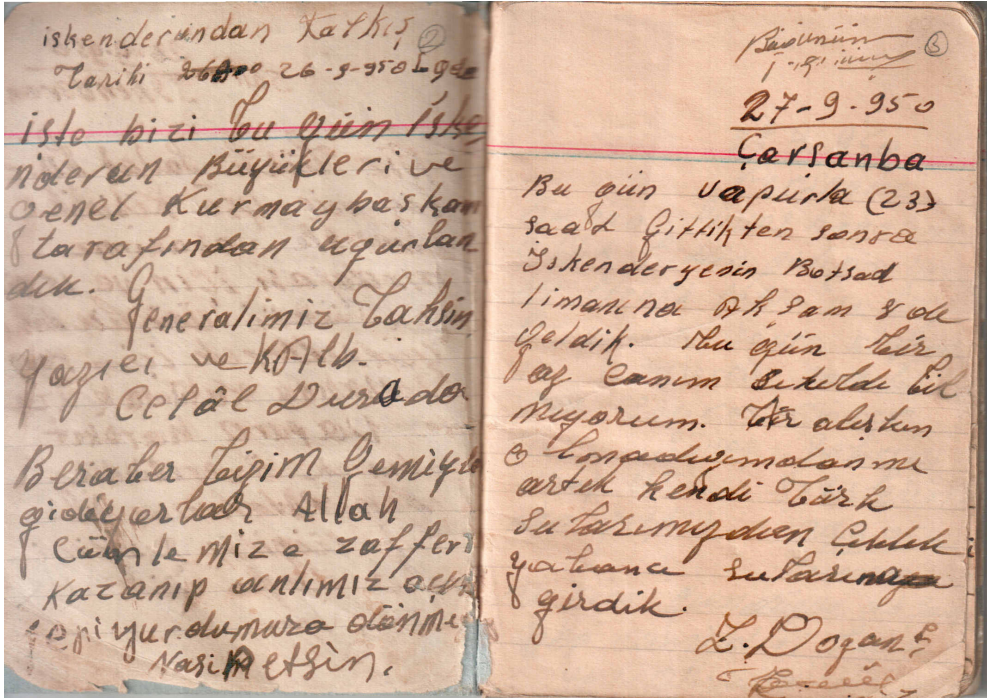 iskenderundan Kalkış
2
Tarihi 26-9-950
işte bizi bu gün İske
nderun Büyükleri ve
Genel Kurmaybaşkanı
tarafından uğurlan
dık.
Generalimiz Tahsin
Yazıcı ve K.Alb.
Celâl Dura da
Beraber bizim Gemiyle
gidiyorlar Allah
Cümlemize zaffer
Kazanıp anlımız açık
yurdumuza dönmeyi
Nasip etsin.
3
Bugünün
27-9-950
Çarşanba
Bu gün vapurla (23)
saat Gittikten sonra
İskenderyenin Botsad
limanına Akşam 8 de
geldik. Bu gün bir
az canım sıkıldı bil
miyorum. Bir alışkın
olmadığımdan mı
artık kendi Türk
sularımızdan Çıktık
yabancı sularına
girdik.
Z. Doğan